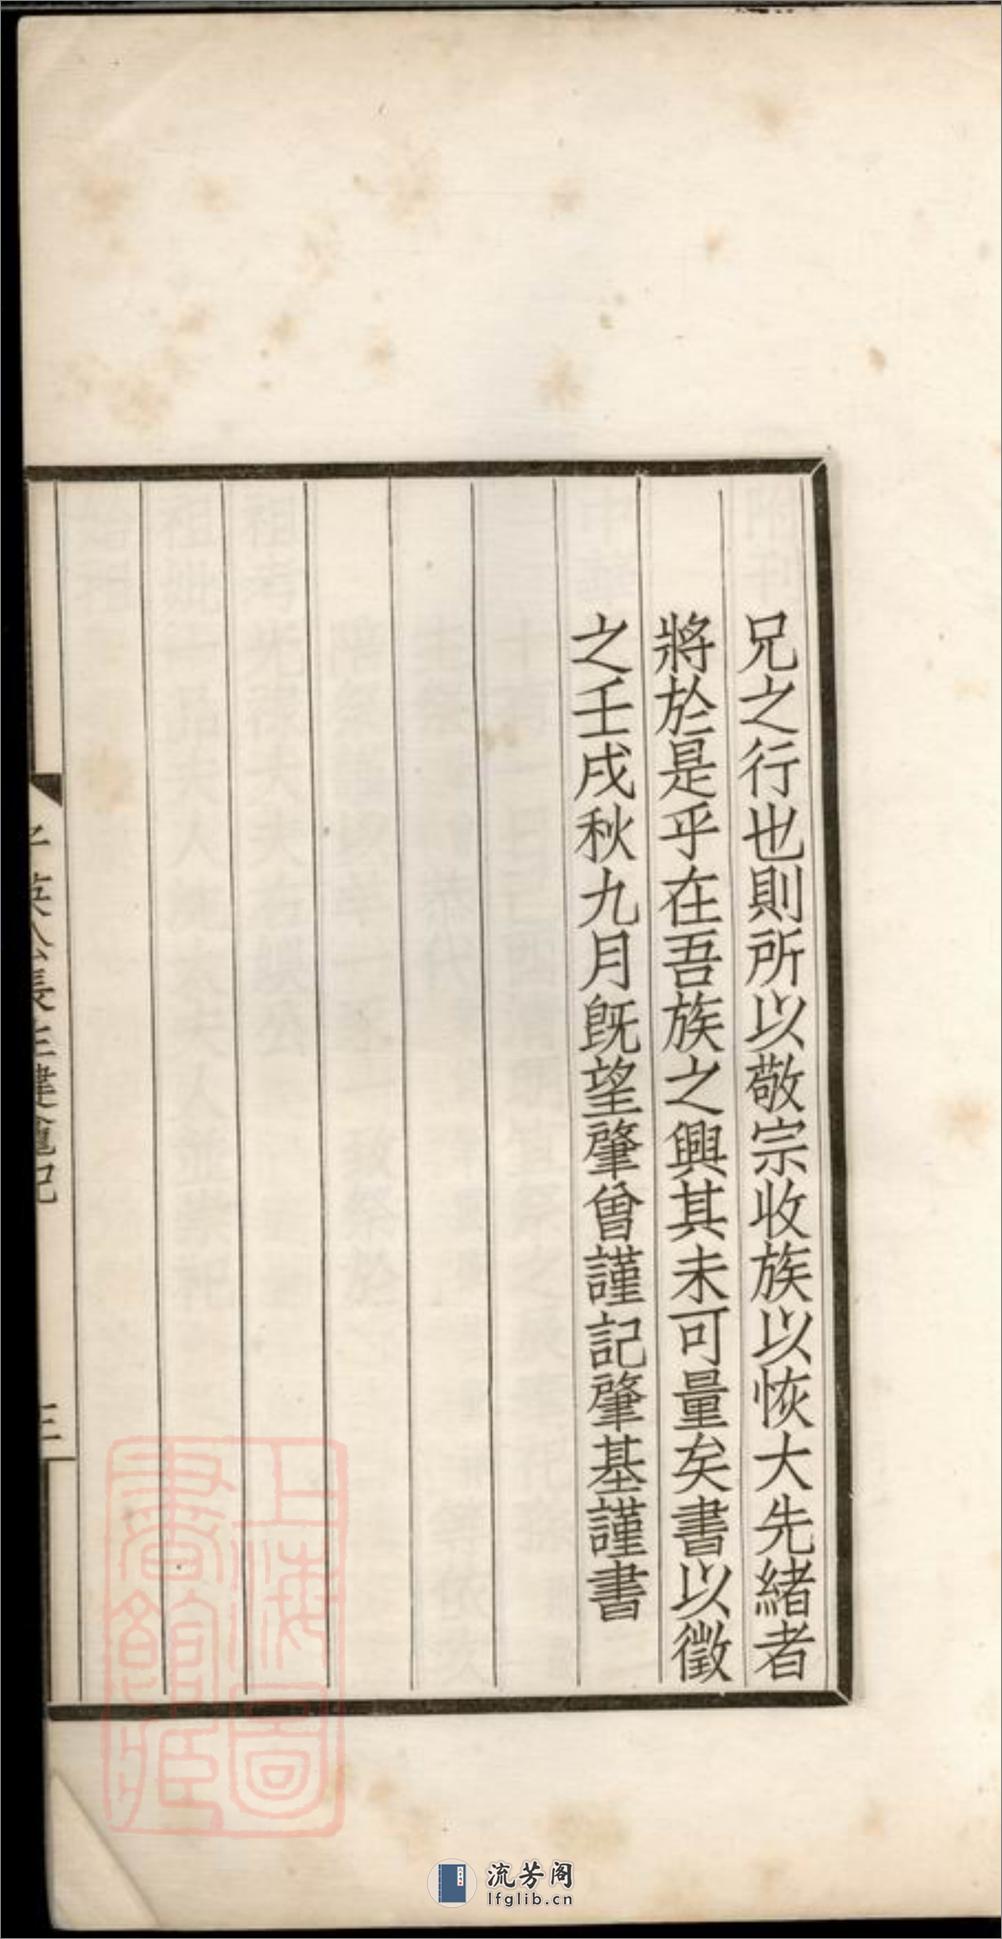 兄之行也則所以敬宗收族以恢大先緒者
將於是乎在吾族之興其未可量矣書以徵
之壬戌秋九月旣望肇曾謹記肇基謹書
英公長生建龕記
三
上海圖書館藏
流芳阁
lfglib.cn